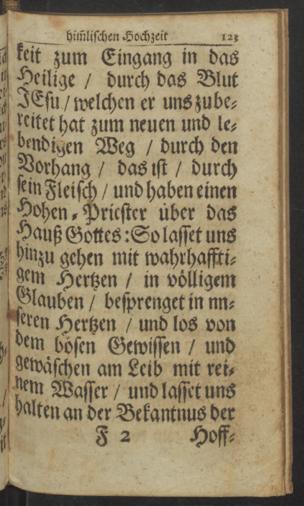 him̃lischen Hochzeit 123
keit zum Eingang in das
Heilige / durch das Blut
JEsu / welchen er uns zube-
reitet hat zum neuen und le-
bendigen Weg / durch den
Vorhang / das ist / durch
sein Fleisch / und haben einen
Hohen-Priester über das
Hauß Gottes: So lasset uns
hinzu gehen mit wahrhaffti-
gem Hertzen / in völligem
Glauben / besprenget in nn-
seren Hertzen / und los von
dem bösen Gewissen / und
gewäschen am Leib mit rei-
nem Wasser / und lasset uns
halten an der Bekantnus der
F 2 Hoff-